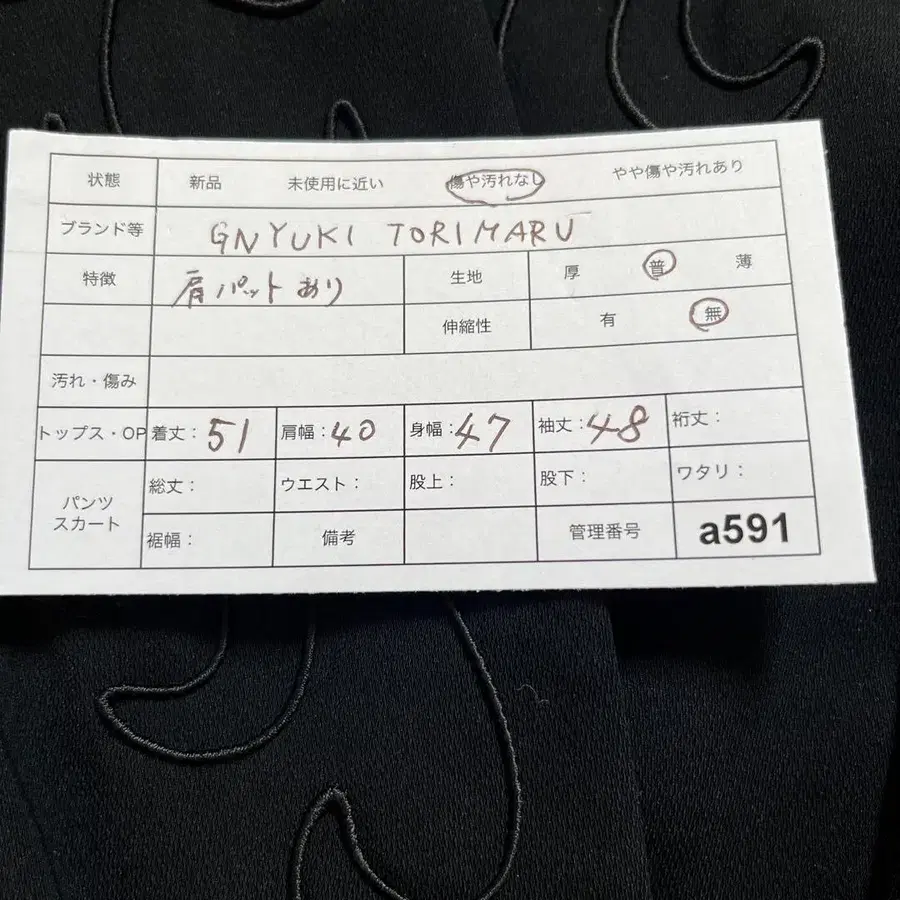 状態 新品 未使用に近い 傷や汚れなし やや傷や汚れあり
ブランド等 GNYUKI TORIMARU
特徴 肩パットあり 生地 厚 普 薄
伸縮性 有 無
汚れ・傷み
トップス・OP 着丈：51 肩幅：40 身幅：47 袖丈：48 裄丈：
パンツ スカート 総丈： ウエスト： 股上： 股下： ワタリ：
裾幅： 備考 管理番号 a591